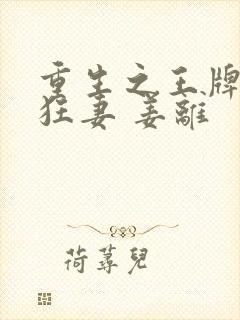 重生之王牌
狂妻 姜離
荷蕁兒